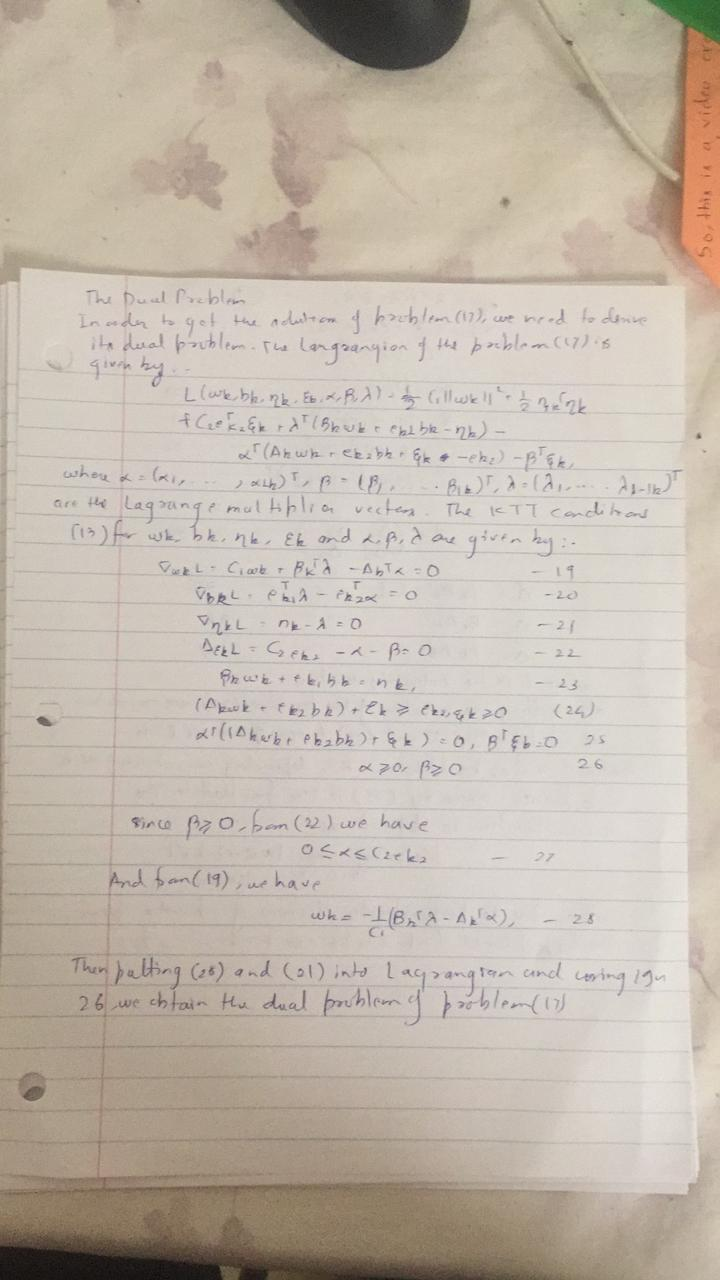 So, this is a video
The Dual Problem
In order to get the solution of problem (17), we need to derive
its dual problem. The Langrangian of the problem (17) is
given by :-
L(wk, bk, ηk, ξk, α, β, λ) = 1/2 C1||wk||² + 1/2 ηkᵀηk
+ C2eᵀk2ξk + λᵀ(Bkwk + ek1bk - ηk) -
αᵀ(Akwk + ek2bk + ξk - ek2) - βᵀξk,
where α = (α1, ..., αlk)ᵀ, β = (β1, ... βlk)ᵀ, λ = (λ1, .... λl-lk)ᵀ
are the Lagrange multiplier vectors. The KTT conditions
(13) for wk, bk, ηk, ξk and α, β, λ are given by :-
∇wkL = C1wk + Bkᵀλ - Akᵀα = 0 - 19
∇bkL = eᵀk1λ - eᵀk2α = 0 - 20
∇ηkL = ηk - λ = 0 - 21
ΔξkL = C2ek2 - α - β = 0 - 22
Bkwk + ek1bk = ηk, - 23
(Akwk + ek2bk) + ξk ≥ ek2, ξk ≥ 0 (24)
αᵀ((Akwk + ek2bk) + ξk) = 0, βᵀξk = 0 25
α ≥ 0, β ≥ 0 26
since β ≥ 0, from (22) we have
0 ≤ α ≤ C2ek2 - 27
And from (19), we have
wk = -1/C1 (Bkᵀλ - Akᵀα), - 28
Then putting (28) and (21) into Lagrangian and using 19-
26, we obtain the dual problem of problem (17)